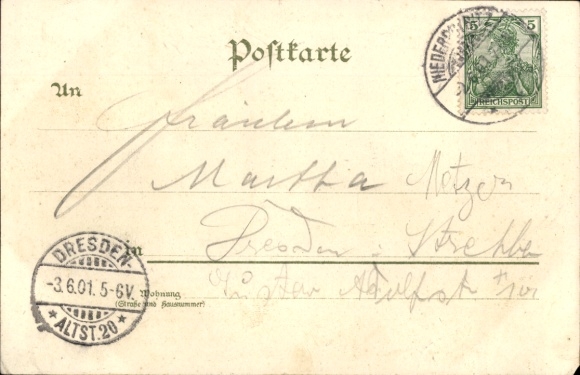 Postkarte
5 5
REICHSPOST
An
Fräulein
Martha Metzger
in Dresden : Strehlen
Wohnung
(Straße und Hausnummer)
Gustav Adolfstr
DRESDEN-
-3.6.01. 5-6V.
* ALTST.20 *